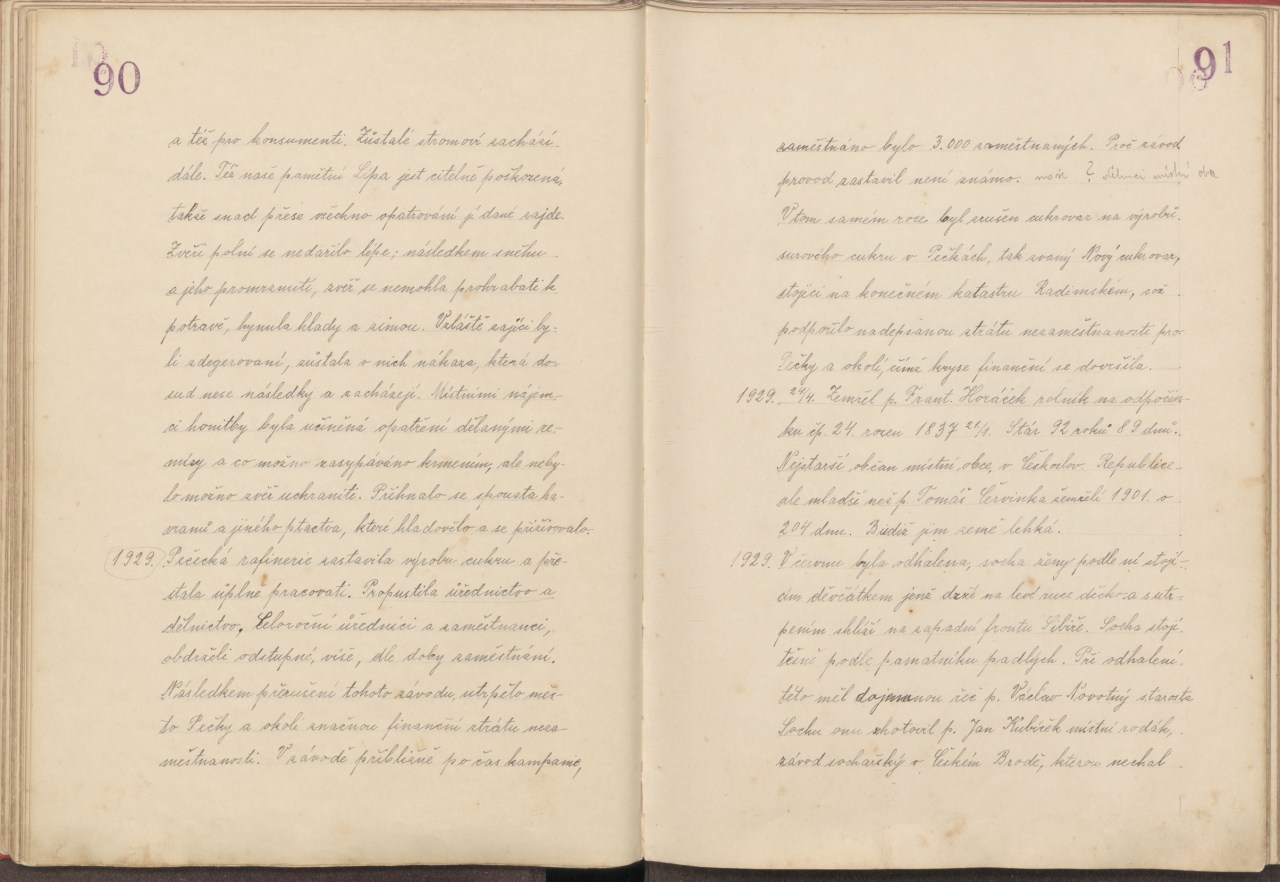 90
a též pro konsumenti. Zůstalé stromoví zachází
dále. Též naše pamětní Lípa jest citelně poškozená,
takže snad přese všechno opatrování jí dané zajde.
Zvěři polní se nedařilo lépe; následkem sněhu
a jeho promrznutí, zvěř se nemohla prohrabati k
potravě, hynula hlady a zimou. Vzláště zajíci by-
li zdegerovaní, zůstala v nich nákaza, která do-
sud nese následky a zacházejí. Místními nájem-
ci honitby byla učiněná opatření dělanými re-
misy a co možno zasypáváno krmením, ale neby-
lo možno zvěř uchrániti. Přihnalo se spousta ha-
vranů a jiného ptactva, které hladovělo a se přiživovalo.
1929. Pečecká rafinerie zastavila výrobu cukru a pře-
stala úplně pracovati. Propustila úřednictvo a
dělnictvo. Celoroční úředníci a zaměstnanci,
obdrželi odstupné, výše, dle doby zaměstnání.
Následkem přerušení tohoto závodu, utrpělo měs-
to Pečky a okolí značnou finanční ztrátu neza-
městnanosti. V závodě přibližně po čas kampaně,
91
zaměstnáno bylo 3.000 zaměstnaných. Proč závod
provod zastavil není známo. ?
V tom samém roce byl zrušen cukrovar na výrobu
surového cukru v Pečkách, tak zvaný Nový cukrovar,
stojící na konečném katastru Radimském, což
podpořilo nadepsanou ztrátu nezaměstnanosti pro
Pečky a okolí, čímž kryse finanční se dovršila.
1929. 24/4. Zemřel p. Frant. Horáček rolník na odpočin-
ku čp. 24. rozen 1837 21/1. Stár 92 roků 89 dnů.
Nejstarší občan místní obce, v Českoslov. Republice
ale mladší než p. Tomáš Červinka zemřelí 1901. o
204 dnu. Budiž jim země lehká.
1929. V červnu byla odhalena, socha ženy podle ní stojí-
cím děvčátkem jenž drží na levé ruce děcko a s utr-
pením shlíží na zapadní frontu Sibiře. Socha stojí
těsně podle památníku padlých. Při odhalení
této měl dojemnou řeč p. Václav Novotný starosta
Sochu onu zhotovil p. Jan Kubíček místní rodák,
závod sochařský v Českém Brodě, kterou nechal